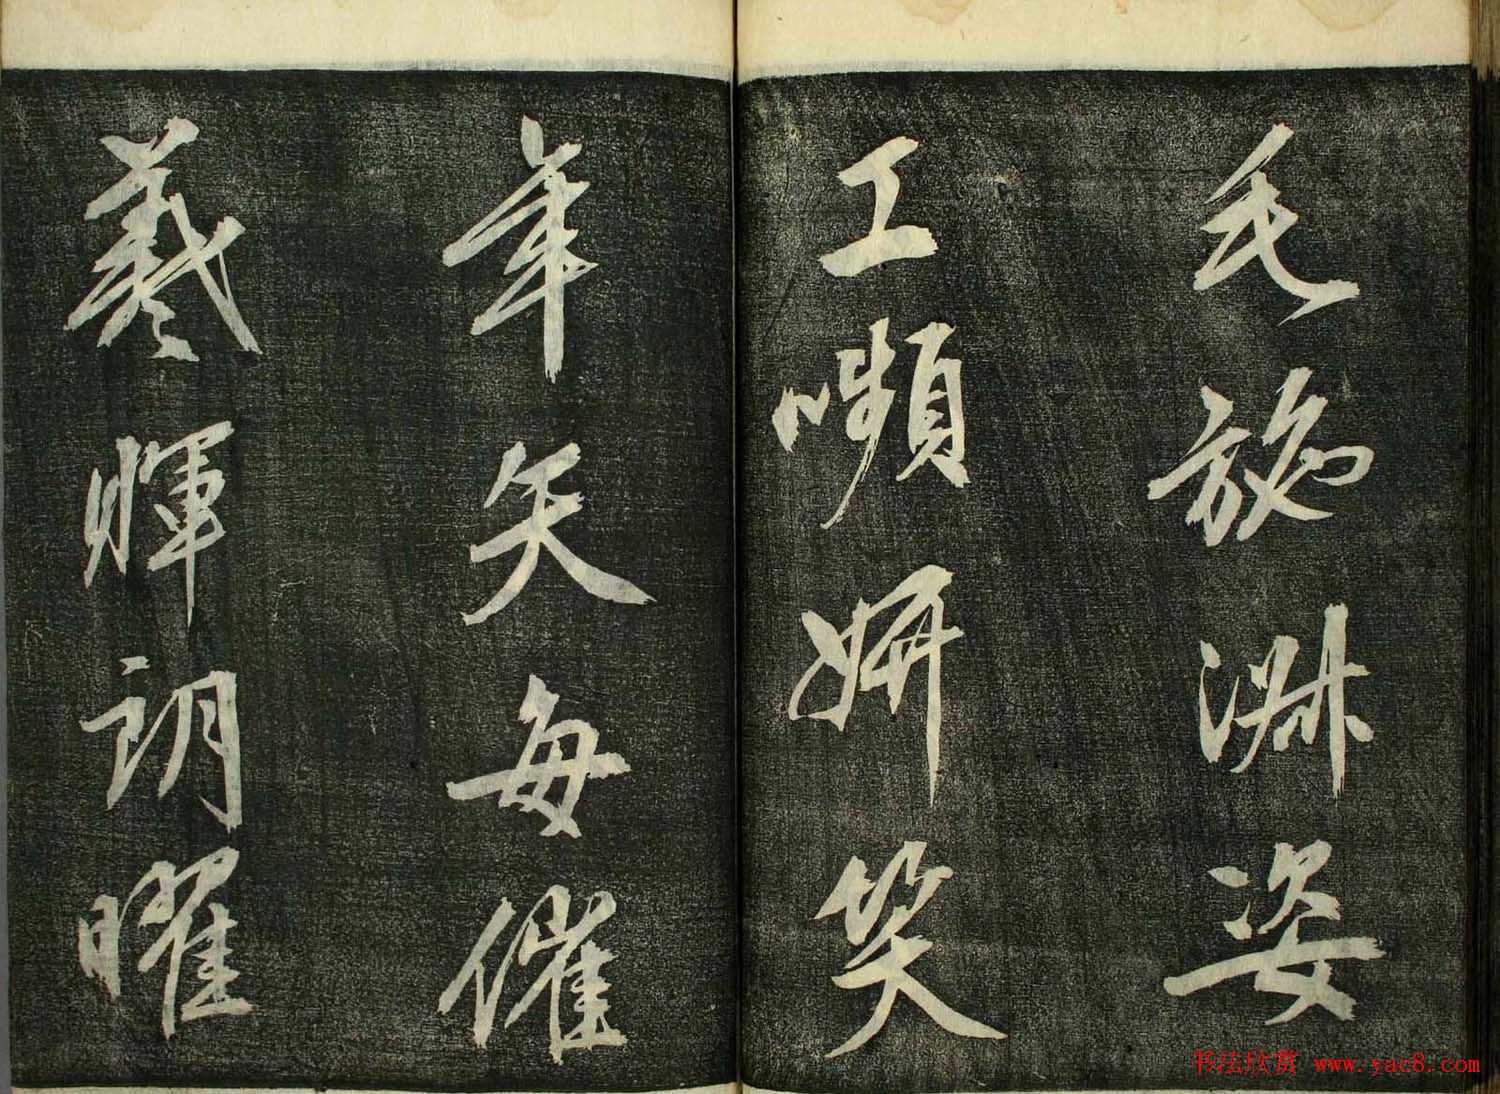 毛施淑姿
工嚬妍笑
年矢每催
羲暉朗曜
书法欣赏 www.yac8.com